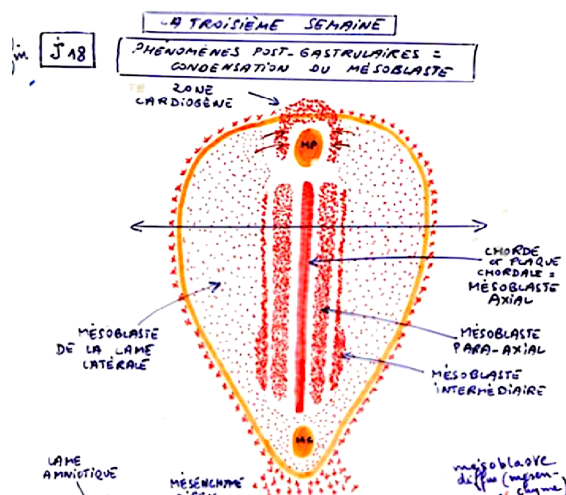 LA TROISIÈME SEMAINE
J18
PHÉNOMÈNES POST-GASTRULAIRES =
CONDENSATION DU MÉSOBLASTE
ZONE
CARDIOGÈNE
MP
CHORDE
ET PLAQUE
CHORDALE =
MÉSOBLASTE
AXIAL
MÉSOBLASTE
DE LA LAME
LATÉRALE
MÉSOBLASTE
PARA-AXIAL
MÉSOBLASTE
INTERMÉDIAIRE
MC
LAME
AMNIOTIQUE
MÉSENCHYME
mésoblaste
diffus (mésen-
chyme)